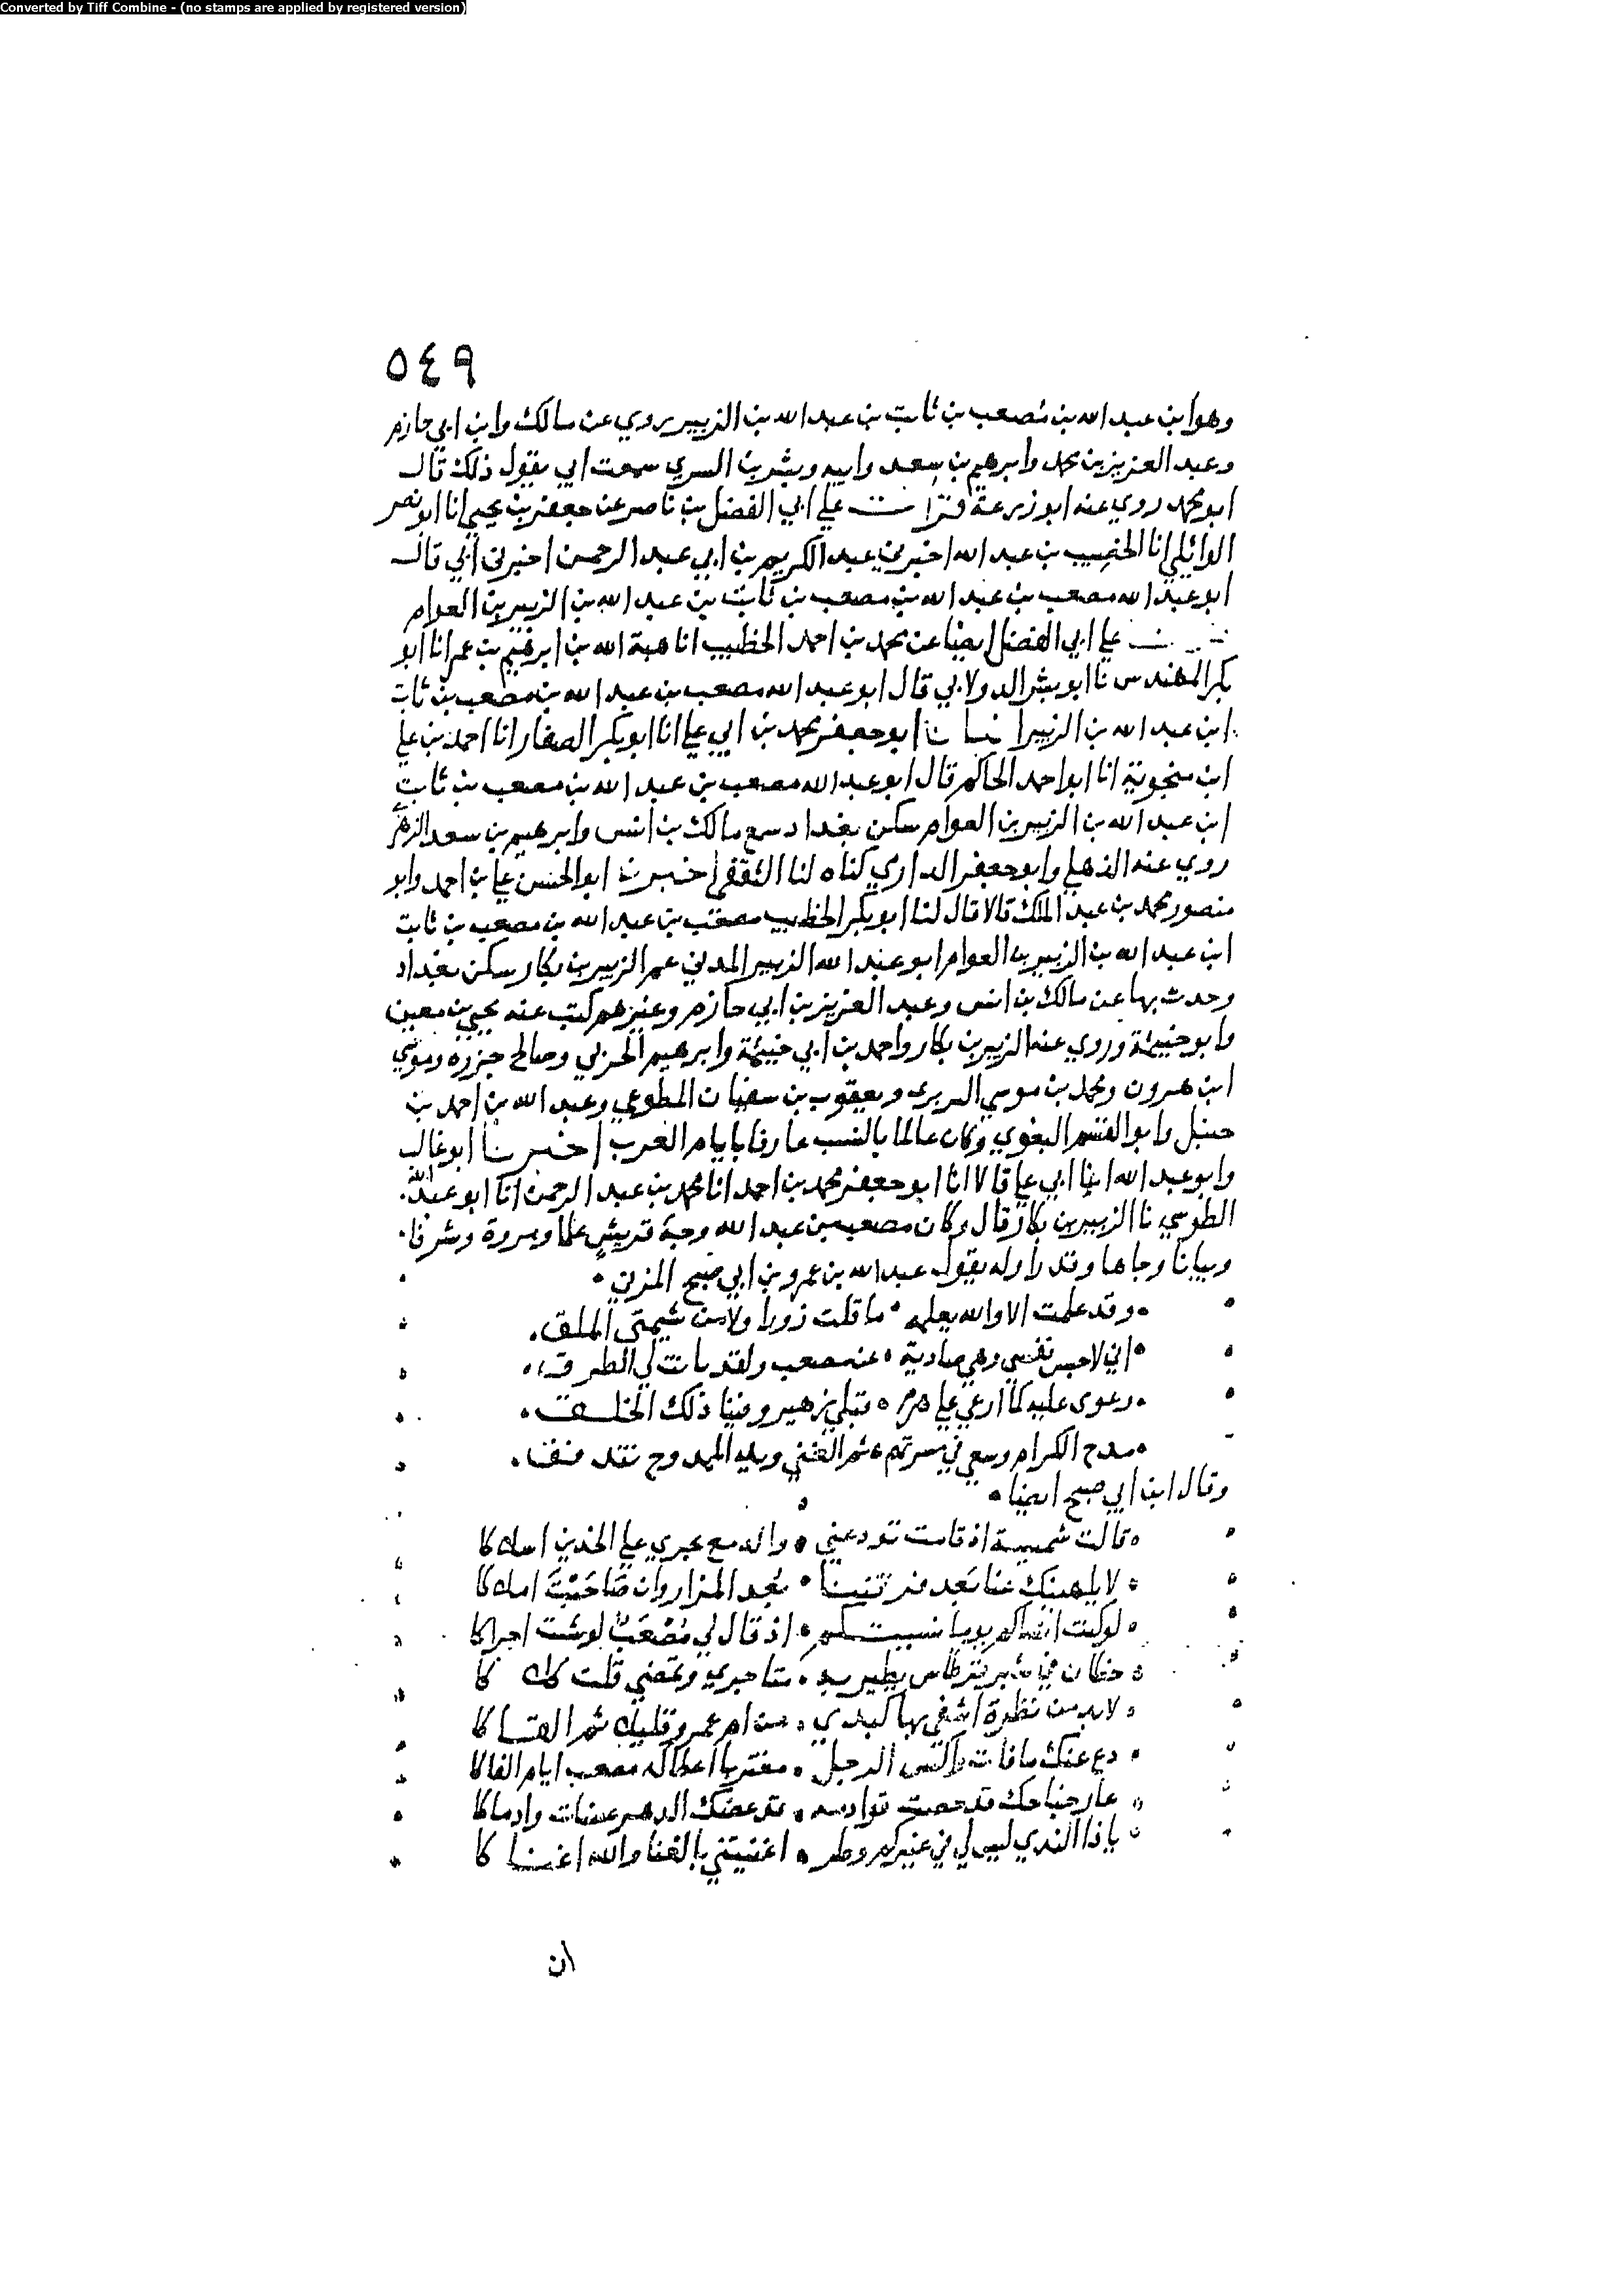 Converted by Tiff Combine - (no stamps are applied by registered version)
٥٤٩
وهو ابن عبد الله بن مصعب بن ثابت بن عبد الله بن الزبير روي عن مالك وابن ابي حازم
وعبد العزيز بن محمد وابرهيم بن سعد وابيه وبشر بن السري سمعت ابي يقول ذلك قال
ابو محمد روي عنه ابو زرعة قرات علي ابي الفضل بن ناصر عن جعفر بن يحيي انا ابو نصر
الوائلي انا الخصيب بن عبد الله اخبرني عبد الكريم بن ابي عبد الرحمن اخبرني ابي قال
ابو عبد الله مصعب بن عبد الله بن مصعب بن ثابت بن عبد الله بن الزبير بن العوام
علي ابي الفضل ايضا عن محمد بن احمد الخطيب انا هبة الله بن ابرهيم بن عمر انا ابو
بكر المهندس نا ابو بشر الدولابي قال ابو عبد الله مصعب بن عبد الله بن مصعب بن ثابت
ابن عبد الله بن الزبير انبانا ابو جعفر محمد بن ابي علي انا ابو بكر الصفار انا احمد بن علي
ابن منجوية انا ابو احمد الحاكم قال ابو عبد الله مصعب بن عبد الله بن مصعب بن ثابت
ابن عبد الله بن الزبير بن العوام سكن بغداد سمع مالك بن انس وابرهيم بن سعد الزهري
روي عنه الذهلي وابو جعفر الداري كناه لنا الثقفي اخبرنا ابو الحسن علي بن احمد وابو
منصور محمد بن عبد الملك قالا قال لنا ابو بكر الخطيب مصعب بن عبد الله بن مصعب بن ثابت
ابن عبد الله بن الزبير بن العوام ابو عبد الله الزبير المدني عم الزبير بن بكار سكن بغداد
وحدث بها عن مالك بن انس وعبد العزيز بن ابي حازم وغيرهم كتب عنه يحيي بن معين
وابو خيثمة وروي عنه الزبير بن بكار واحمد بن ابي خيثمة وابرهيم الحربي وصالح جزره وموسي
ابن هرون ومحمد بن موسي البربري ويعقوب بن سفيان المطوعي وعبد الله بن احمد بن
حنبل وابو القسم البغوي وكان عالما بالنسب عارفا بايام العرب اخبرنا ابو غالب
وابو عبد الله ابنا ابي علي قالا انا ابو جعفر محمد بن احمد انا محمد بن عبد الرحمن انا ابو عبد الله
الطوسي نا الزبير بن بكار قال وكان مصعب بن عبد الله وجه قريش علما ومروة وشرفا
وبيانا وجاها وقدرا وله يقول عبد الله بن عمرو بن ابي صبح المزني
وقد علمت الا والله يعلمه ما قلت زورا ولا من شيمتي الملق
اني لاحبس نفسي وهي صادية عن مصعب ولقد بانت لي الطرق
رعوى عليه كما ارعي علي هرم قبلي زهير وفينا ذلك الخلق
مدح الكرام وسعي في مسرتهم ثم الغني ويد الممدوح تندفق
وقال ابن ابي صبح ايضا
قالت شميسة اذ قامت تودعني والدمع يجري علي الخدين
لا يلهينك عنا بعد فرقتنا بعد المزار وان صاحبت املاكا
لو كنت انساكم يوما نسيتكم اذ قال لي مصعب لوشئت اجراكا
فكان في شبر قرطاس يطير به متا حبري وتمضي قلت كا
لا بد من نظرة اشفي بها كبدي من ام عمرو فليك ثم القاكا
دع عنك ما فات والتمس الرحيل مغتربا اعطاك مصعب ايام
عار جناحك قد حصت قوادمه قد عضك الدهر عضات وادماكا
ياذا الندي ليس لي في غيركم وطر اغنيتني بالغنا والله اغناكا
ان